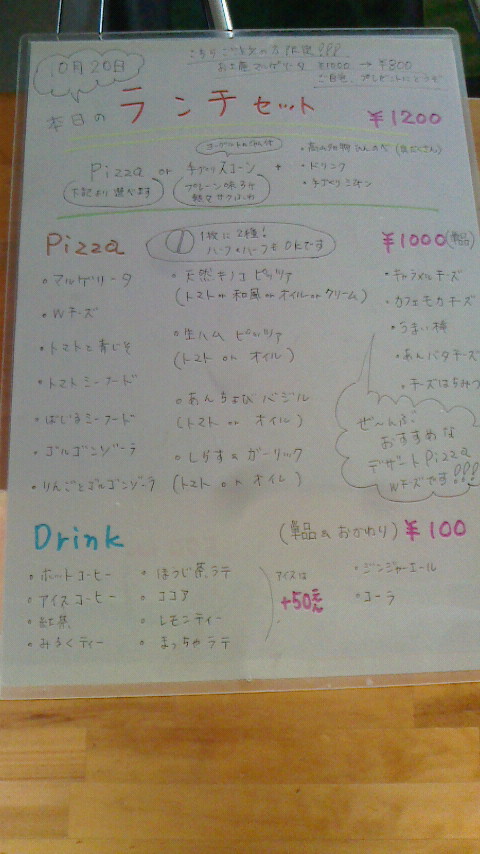 10月20日
こちらご注文の方限定!!!
お土産マルゲリータ ¥1000 → ¥800
ご自宅、プレゼントにどうぞ
本日の ランチセット ¥1200
Pizza or 手づくりスコーン +
下記より選べます
プレーン味
・ドリンク
Pizza
1枚に2種!
ハーフ&ハーフもOKです
¥1000(単品)
・マルゲリータ
・Wチーズ
・トマトと青じそ
・トマトシーフード
・ばじるシーフード
・ゴルゴンゾーラ
・りんごとゴルゴンゾーラ
・天然キノコピッツァ
(トマト or 和風 or オイル or クリーム)
・生ハムピッツァ
(トマト or オイル)
・あんちょびバジル
(トマト or オイル)
・しらす&ガーリック
(トマト or オイル)
・キャラメルチーズ
・カフェモカチーズ
・うまい棒
・あんバタチーズ
・チーズはちみつ
ぜ〜んぶ
おすすめな
デザートPizza
Wチーズです!!!
Drink
(単品&おかわり) ¥100
・ホットコーヒー
・アイスコーヒー
・紅茶
・みるくティー
・ほうじ茶ラテ
・ココア
・レモンティー
・まっちゃラテ
アイスは
+50えん
・ジンジャーエール
・コーラ